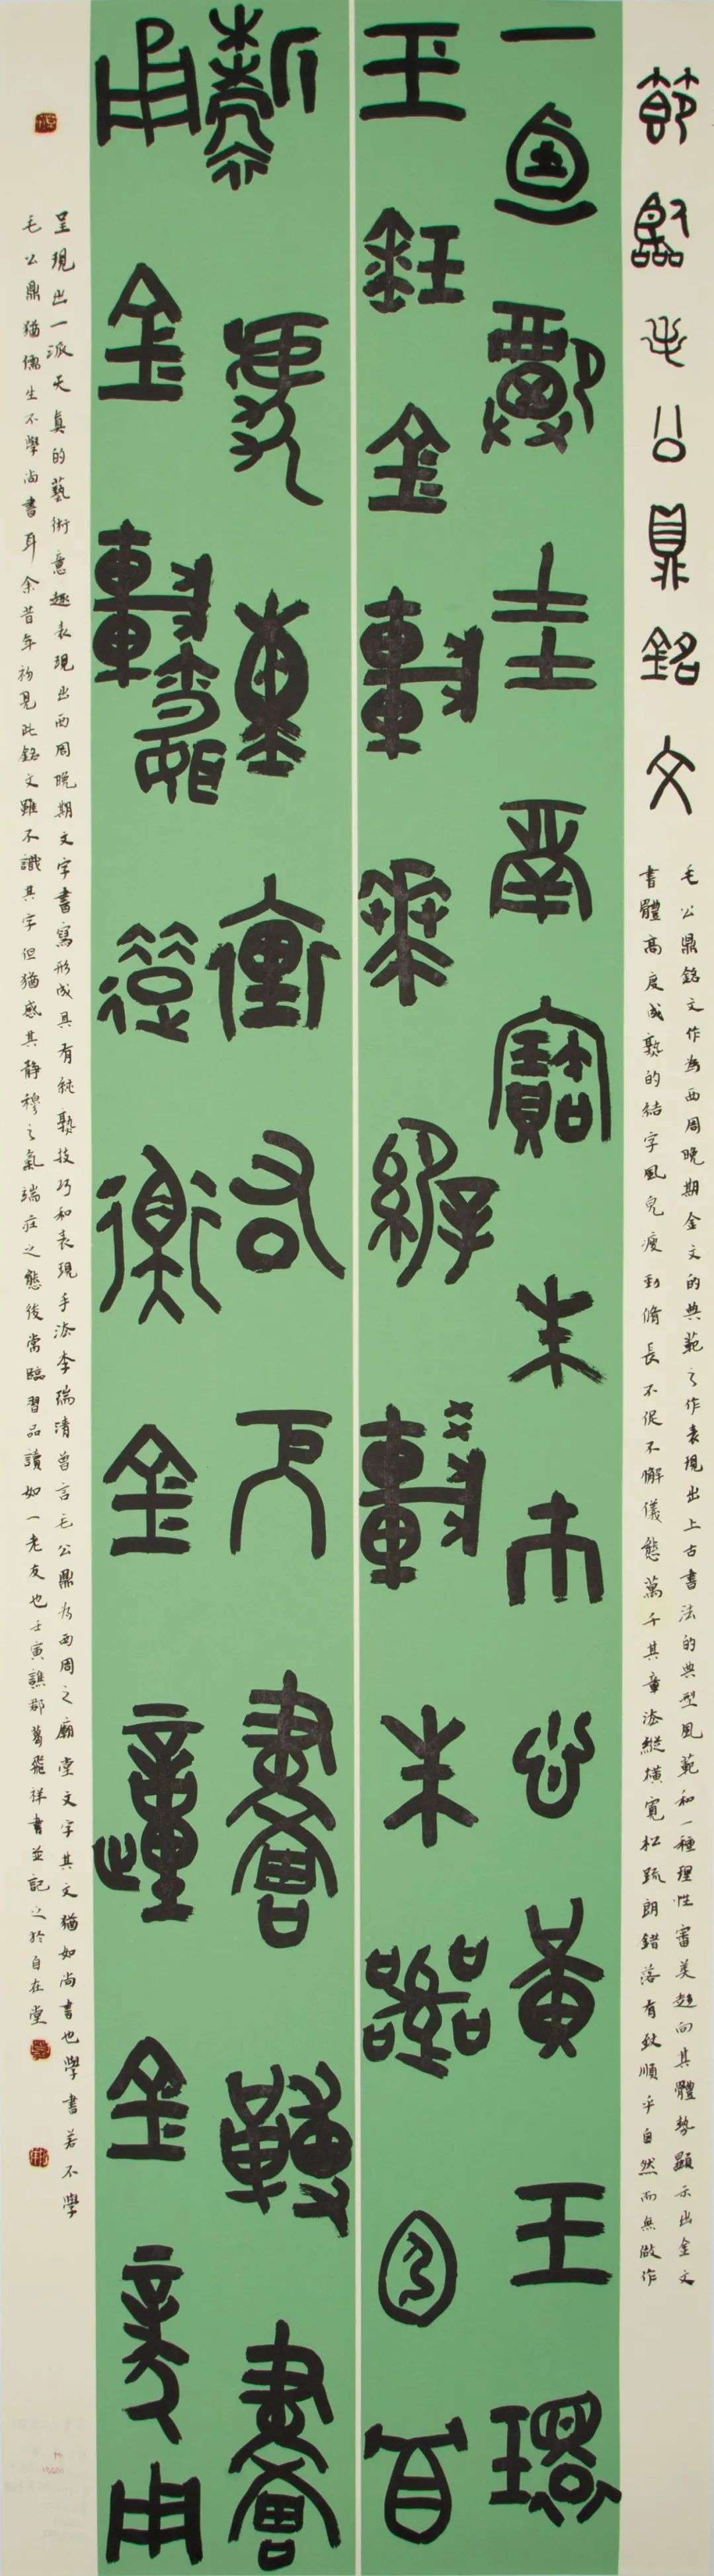 節臨毛公鼎銘文
毛公鼎銘文作為西周晚期金文的典範之作表現出上古書法的典型風範和一種理性審美趨向其體勢顯示出金文
書體高度成熟的結字風皃瘦勁脩長不促不懈儀態萬千其章法縱橫寬松疏朗錯落有致順乎自然而無做作
一卣祼圭瓚寶朱巿悤黃玉環
玉金車朱
熏右厄畫畫
甬金衡金踵金甬
呈現出一派天真的藝術意趣表現出西周晚期文字書寫形成具有純熟技巧和表現手法李瑞清曾言毛公鼎為西周之廟堂文字其文猶如尚書也學書若不學
毛公鼎猶儒生不學尚書耳余昔年初見此銘文雖不識其字但猶感其靜穆之氣端莊之態後常臨習品讀如一老友也壬寅譙郡葛飛祥書並記之於自在堂